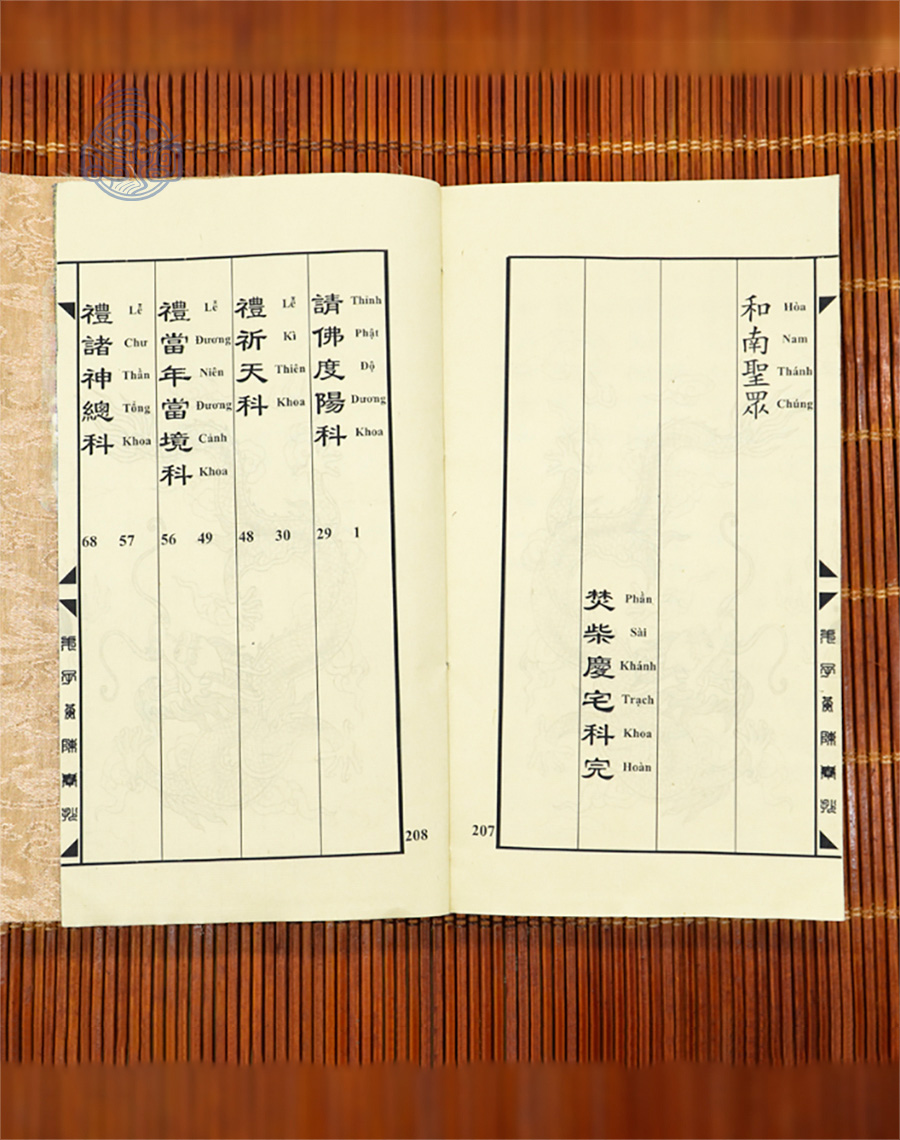 和南聖眾
Hòa Nam Thánh Chúng
焚柴慶宅科完
Phần Sài Khánh Trạch Khoa Hoàn
207
請佛度陽科
Thỉnh Phật Độ Dương Khoa
1
29
禮祈天科
Lễ Kì Thiên Khoa
30
48
禮當年當境科
Lễ Đương Niên Đương Cảnh Khoa
49
56
禮諸神總科
Lễ Chư Thần Tổng Khoa
57
68
208